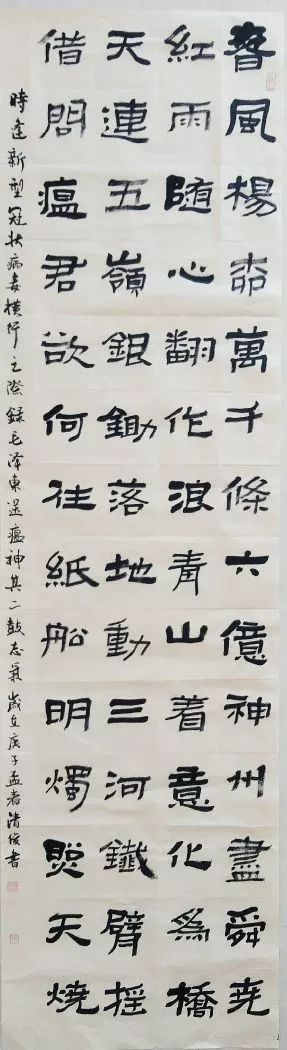 春風楊柳萬千條六億神州盡舜尧
紅雨随心翻作浪青山着意化為橋
天連五嶺銀鋤落地動三河鐵臂摇
借問瘟君欲何往紙船明燭照天燒
時逢新型冠狀病毒横行之際錄毛泽東送瘟神其二鼓志氣歲在庚子孟春清俊書